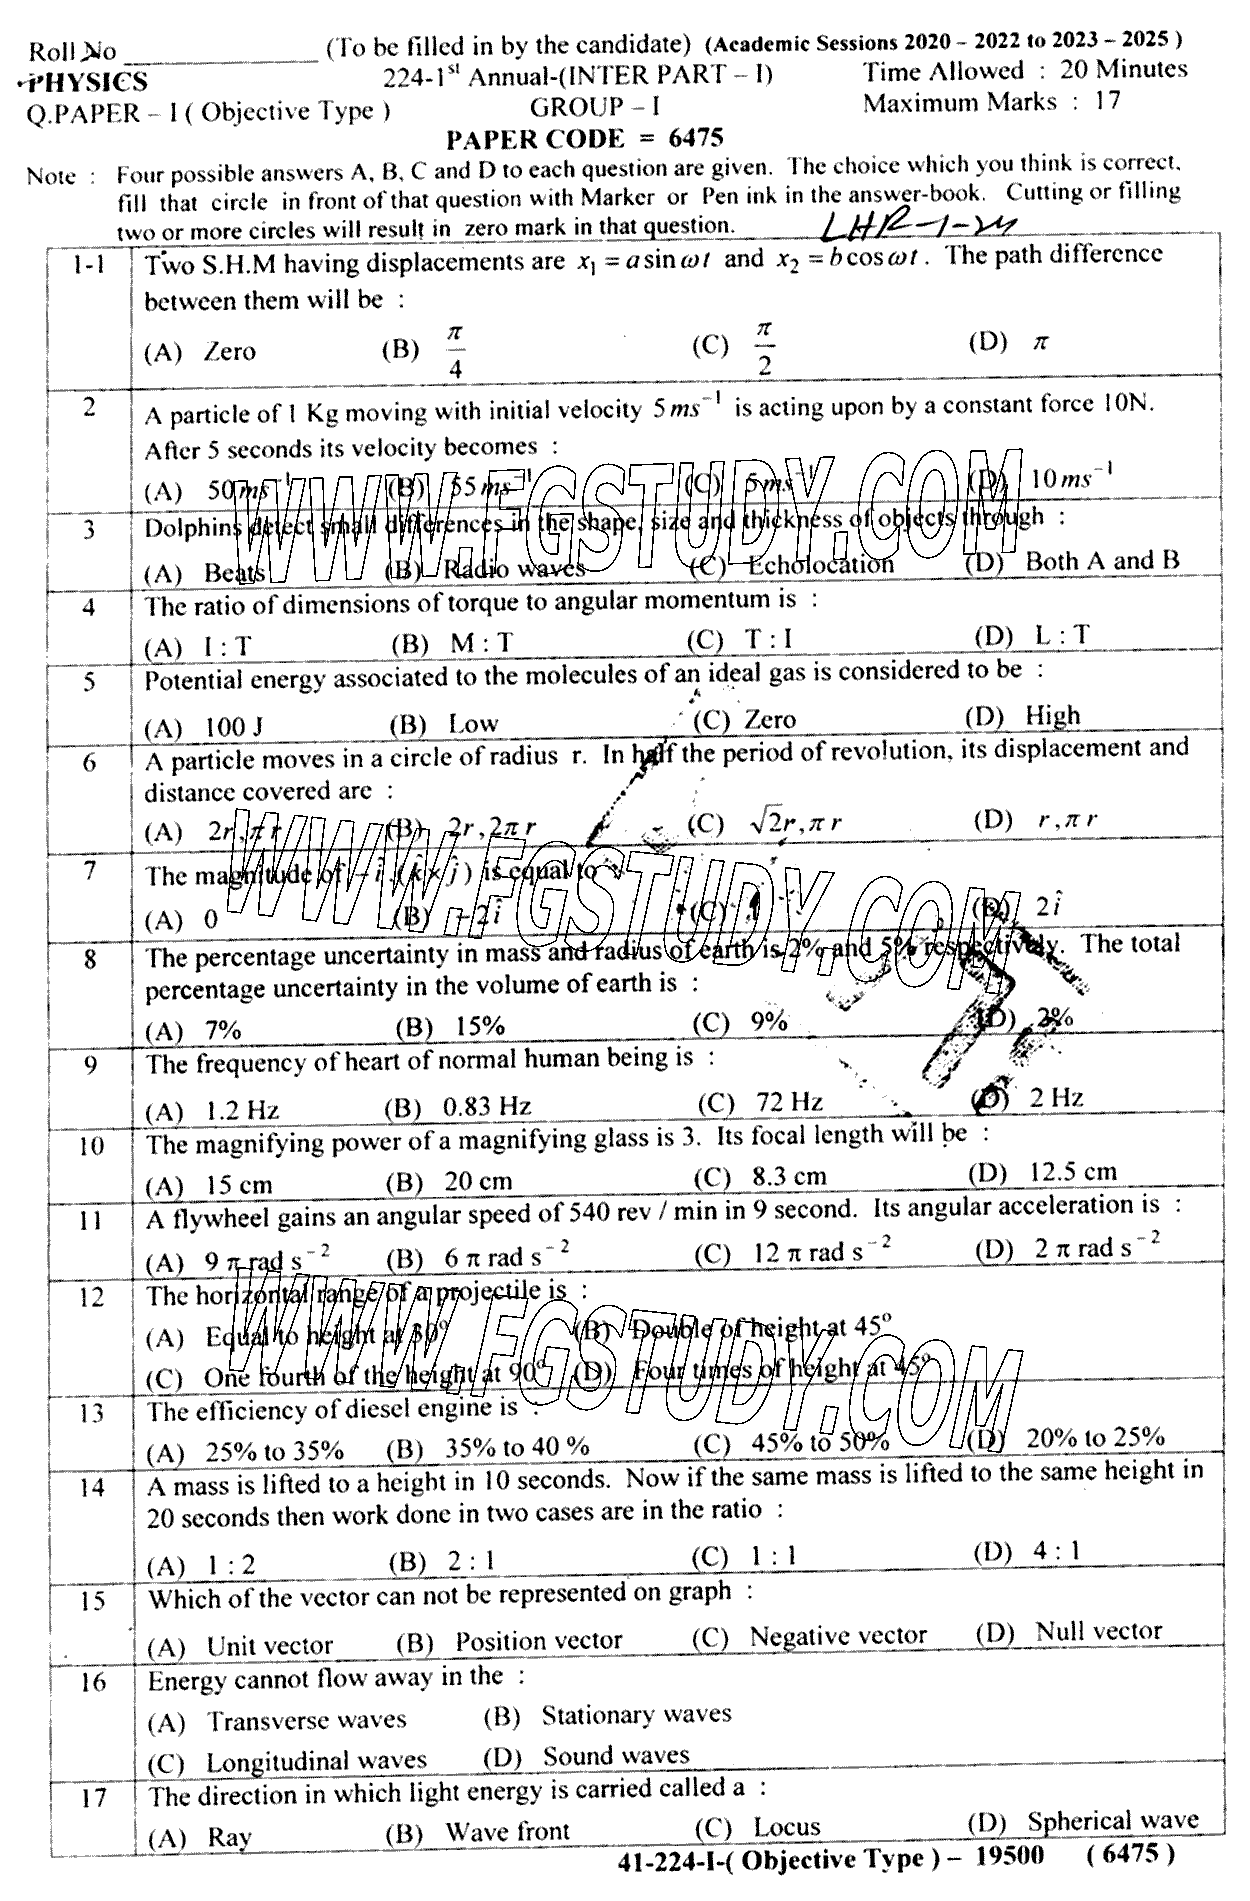 Roll No ______________ (To be filled in by the candidate) (Academic Sessions 2020 – 2022 to 2023 – 2025 )
PHYSICS 224-1st Annual-(INTER PART – I) Time Allowed : 20 Minutes
Q.PAPER – I ( Objective Type ) GROUP – I Maximum Marks : 17
PAPER CODE = 6475
Note : Four possible answers A, B, C and D to each question are given. The choice which you think is correct,
fill that circle in front of that question with Marker or Pen ink in the answer-book. Cutting or filling
two or more circles will result in zero mark in that question. LHR-1-24
1-1 Two S.H.M having displacements are x₁ = a sin ωt and x₂ = b cos ωt . The path difference
between them will be :
(A) Zero (B) π/4 (C) π/2 (D) π
2 A particle of 1 Kg moving with initial velocity 5 ms⁻¹ is acting upon by a constant force 10N.
After 5 seconds its velocity becomes :
(A) 50 ms⁻¹ (B) 55 ms⁻¹ (C) 5 ms⁻¹ (D) 10 ms⁻¹
WWW.FGSTUDY.COM
3 Dolphins detect small differences in the shape, size and thickness of objects through :
(A) Beats (B) Radio waves (C) Echolocation (D) Both A and B
4 The ratio of dimensions of torque to angular momentum is :
(A) I : T (B) M : T (C) T : I (D) L : T
5 Potential energy associated to the molecules of an ideal gas is considered to be :
(A) 100 J (B) Low (C) Zero (D) High
6 A particle moves in a circle of radius r. In half the period of revolution, its displacement and
distance covered are :
(A) 2r , π r (B) 2r , 2π r (C) √2r , π r (D) r , π r
WWW.FGSTUDY.COM
7 The magnitude of – î . (k̂ × ĵ ) is equal to
(A) 0 (B) – 2î (C) 1 (D) 2î
8 The percentage uncertainty in mass and radius of earth is 2% and 5% respectively. The total
percentage uncertainty in the volume of earth is :
(A) 7% (B) 15% (C) 9% (D) 2%
9 The frequency of heart of normal human being is :
(A) 1.2 Hz (B) 0.83 Hz (C) 72 Hz (D) 2 Hz
10 The magnifying power of a magnifying glass is 3. Its focal length will be :
(A) 15 cm (B) 20 cm (C) 8.3 cm (D) 12.5 cm
11 A flywheel gains an angular speed of 540 rev / min in 9 second. Its angular acceleration is :
(A) 9 π rad s⁻² (B) 6 π rad s⁻² (C) 12 π rad s⁻² (D) 2 π rad s⁻²
12 The horizontal range of a projectile is :
WWW.FGSTUDY.COM
(A) Equal to height at 30° (B) Double of height at 45°
(C) One fourth of the height at 90° (D) Four times of height at 45°
13 The efficiency of diesel engine is :
(A) 25% to 35% (B) 35% to 40 % (C) 45% to 50% (D) 20% to 25%
14 A mass is lifted to a height in 10 seconds. Now if the same mass is lifted to the same height in
20 seconds then work done in two cases are in the ratio :
(A) 1 : 2 (B) 2 : 1 (C) 1 : 1 (D) 4 : 1
15 Which of the vector can not be represented on graph :
(A) Unit vector (B) Position vector (C) Negative vector (D) Null vector
16 Energy cannot flow away in the :
(A) Transverse waves (B) Stationary waves
(C) Longitudinal waves (D) Sound waves
17 The direction in which light energy is carried called a :
(A) Ray (B) Wave front (C) Locus (D) Spherical wave
41-224-I-( Objective Type ) – 19500 ( 6475 )